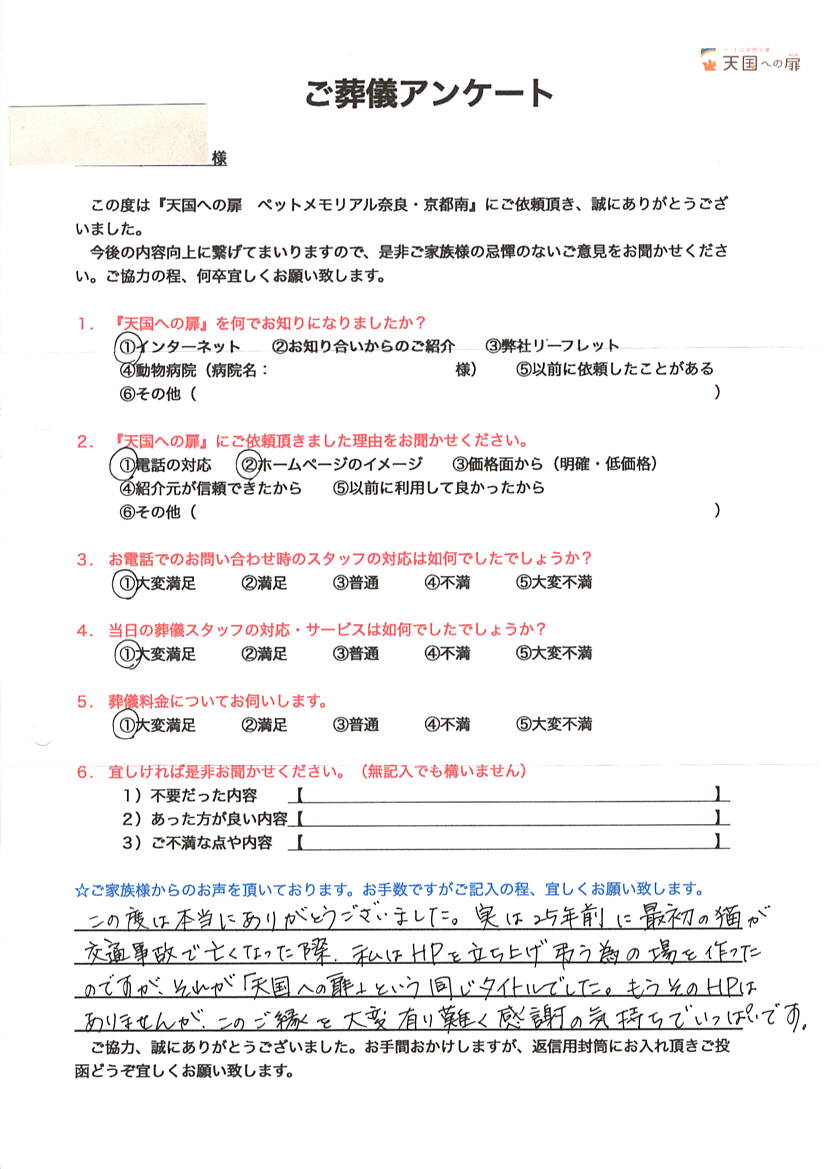 天国への扉
ご葬儀アンケート
様
この度は『天国への扉　ペットメモリアル奈良・京都南』にご依頼頂き、誠にありがとうござ
いました。
今後の内容向上に繋げてまいりますので、是非ご家族様の忌憚のないご意見をお聞かせくださ
い。ご協力の程、何卒宜しくお願い致します。
1．『天国への扉』を何でお知りになりましたか？
①インターネット　②お知り合いからのご紹介　③弊社リーフレット
④動物病院（病院名：　様）　⑤以前に依頼したことがある
⑥その他（　）
2．『天国への扉』にご依頼頂きました理由をお聞かせください。
①電話の対応　②ホームページのイメージ　③価格面から（明確・低価格）
④紹介元が信頼できたから　⑤以前に利用して良かったから
⑥その他（　）
3．お電話でのお問い合わせ時のスタッフの対応は如何でしたでしょうか？
①大変満足　②満足　③普通　④不満　⑤大変不満
4．当日の葬儀スタッフの対応・サービスは如何でしたでしょうか？
①大変満足　②満足　③普通　④不満　⑤大変不満
5．葬儀料金についてお伺いします。
①大変満足　②満足　③普通　④不満　⑤大変不満
6．宜しければ是非お聞かせください。（無記入でも構いません）
1）不要だった内容　【　】
2）あった方が良い内容【　】
3）ご不満な点や内容　【　】
☆ご家族様からのお声を頂いております。お手数ですがご記入の程、宜しくお願い致します。
この度は本当にありがとうございました。実は25年前に最初の猫が
交通事故で亡くなった際、私はHPを立ち上げ弔う為の場を作った
のですが、それが「天国への扉」という同じタイトルでした。もうそのHPは
ありませんが、このご縁を大変有り難く感謝の気持ちでいっぱいです。
ご協力、誠にありがとうございました。お手間おかけしますが、返信用封筒にお入れ頂きご投
函どうぞ宜しくお願い致します。